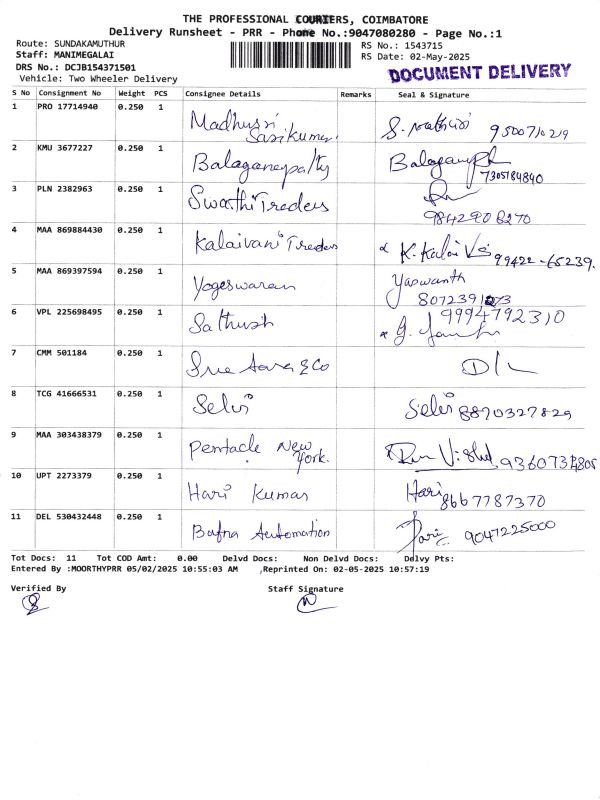 THE PROFESSIONAL COURIERS, COIMBATORE
Delivery Runsheet - PRR - Phone No.:9047080280 - Page No.:1
Route: SUNDAKAMUTHUR
Staff: MANIMEGALAI
DRS No.: DCJB154371501
Vehicle: Two Wheeler Delivery
RS No.: 1543715
RS Date: 02-May-2025
DOCUMENT DELIVERY
S No Consignment No Weight PCS Consignee Details Remarks Seal & Signature
1 PRO 17714940 0.250 1 Madhusri Sasikumar 9500710219
2 KMU 3677227 0.250 1 Balaganapalty 7305784840
3 PLN 2382963 0.250 1 Swathi Traders
4 MAA 869884430 0.250 1 Kalaivani Traders K. Kalai 99422-65239.
5 MAA 869397594 0.250 1 Yogeswaran Yaswanth
6 VPL 225698495 0.250 1 Sathush 9994792310
7 CMM 501184 0.250 1 Sree &Co
8 TCG 41666531 0.250 1 Selvi Selvi 8870327829
9 MAA 303438379 0.250 1 Pentacle New York.
10 UPT 2273379 0.250 1 Hari Kumar Hari 8667787370
11 DEL 530432448 0.250 1 Bafna Automation 9047225000
Tot Docs: 11 Tot COD Amt: 0.00 Delvd Docs: Non Delvd Docs: Delvy Pts:
Entered By :MOORTHYPRR 05/02/2025 10:55:03 AM ,Reprinted On: 02-05-2025 10:57:19
Verified By Staff Signature